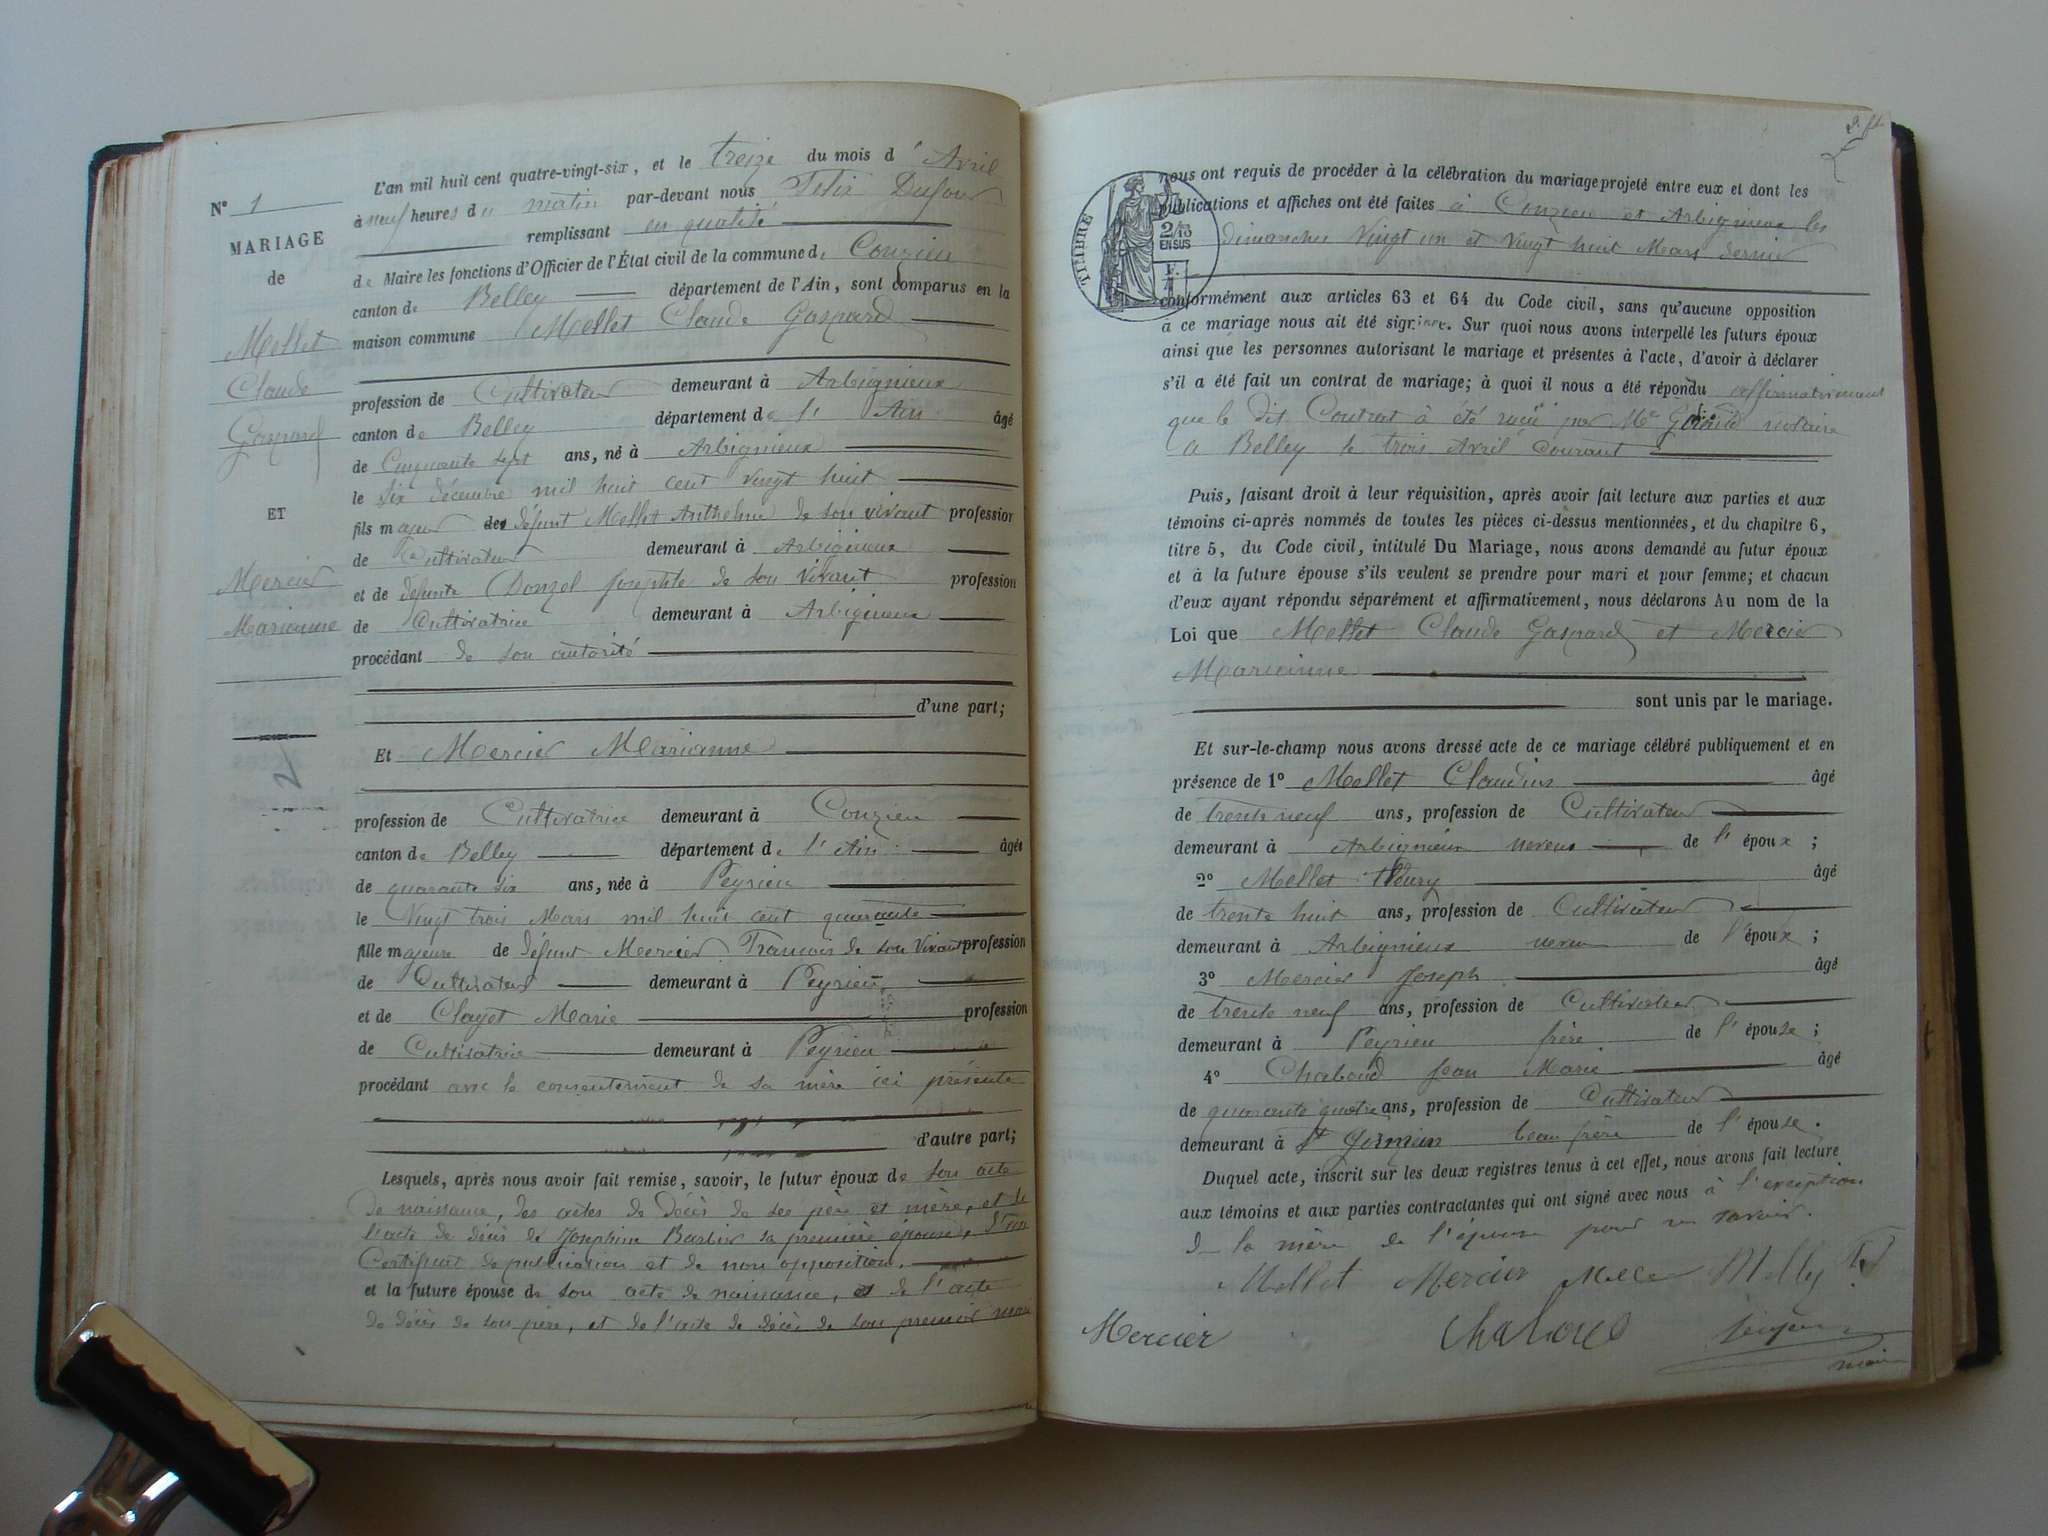 N° 1
MARIAGE
de
Mellet
Claude
Gaspard
ET
Mercier
Marianne
L'an mil huit cent quatre-vingt-six, et le treize du mois d'Avril
à neuf heures du matin par-devant nous Felix Dufour
remplissant en qualité
de Maire les fonctions d'Officier de l'État civil de la commune d. Conzieu
canton de Belley département de l'Ain, sont comparus en la
maison commune Mellet Claude Gaspard
profession de Cultivateur demeurant à Arbignieux
canton de Belley département de l'Ain âgé
de Cinquante sept ans, né à Arbignieux
le six décembre mil huit cent vingt huit
fils majeur de défunt Mellet Anthelme de son vivant profession
de Cultivateur demeurant à Arbignieux
et de défunte Donzel Josephte de son vivant profession
de Cultivatrice demeurant à Arbignieux
procédant de son autorité
d'une part;
Et Mercier Marianne
profession de Cultivatrice demeurant à Conzieu
canton de Belley département de l'Ain âgée
de quarante six ans, née à Peyrieu
le Vingt trois Mars mil huit cent quarante
fille majeure de défunt Mercier Francois de son vivant profession
de Cultivateur demeurant à Peyrieu
et de Clayet Marie profession
de Cultivatrice demeurant à Peyrieu
procédant avec le consentement de sa mère ici présente
d'autre part;
Lesquels, après nous avoir fait remise, savoir, le futur époux de son acte
de naissance, des actes de décès de ses père et mère, et de
l'acte de décès de Josephine Barbier sa première épouse, d'un
Certificat de publication et de non opposition.
et la future épouse de son acte de naissance, de l'acte
de décès de son père, et de l'acte de décès de son premier mari
nous ont requis de procéder à la célébration du mariage projeté entre eux et dont les
publications et affiches ont été faites à Conzieu et Arbignieux les
dimanches Vingt un et Vingt huit Mars dernier
TIMBRE
2/10
EN SUS
conformément aux articles 63 et 64 du Code civil, sans qu'aucune opposition
à ce mariage nous ait été signifiée. Sur quoi nous avons interpellé les futurs époux
ainsi que les personnes autorisant le mariage et présentes à l'acte, d'avoir à déclarer
s'il a été fait un contrat de mariage; à quoi il nous a été répondu affirmativement
que le dit Contrat à été reçu par Me notaire
a Belley le trois Avril courant
Puis, faisant droit à leur réquisition, après avoir fait lecture aux parties et aux
témoins ci-après nommés de toutes les pièces ci-dessus mentionnées, et du chapitre 6,
titre 5, du Code civil, intitulé Du Mariage, nous avons demandé au futur époux
et à la future épouse s'ils veulent se prendre pour mari et pour femme; et chacun
d'eux ayant répondu séparément et affirmativement, nous déclarons Au nom de la
Loi que Mellet Claude Gaspard et Mercier
Marianne
sont unis par le mariage.
Et sur-le-champ nous avons dressé acte de ce mariage célébré publiquement et en
présence de 1° Mellet Claudius âgé
de trente neuf ans, profession de Cultivateur
demeurant à Arbignieux neveu de l'époux;
2° Mellet Fleury âgé
de trente huit ans, profession de Cultivateur
demeurant à Arbignieux neveu de l'époux;
3° Mercier Joseph âgé
de trente neuf ans, profession de Cultivateur
demeurant à Peyrieu frère de l'épouse;
4° Chaboud Jean Marie âgé
de quarante quatre ans, profession de Cultivateur
demeurant à St Germain beau frère de l'épouse.
Duquel acte, inscrit sur les deux registres tenus à cet effet, nous avons fait lecture
aux témoins et aux parties contractantes qui ont signé avec nous à l'exception
de la mère de l'épouse pour ne savoir.
Mellet Mercier
Mercier Chaboud
maire